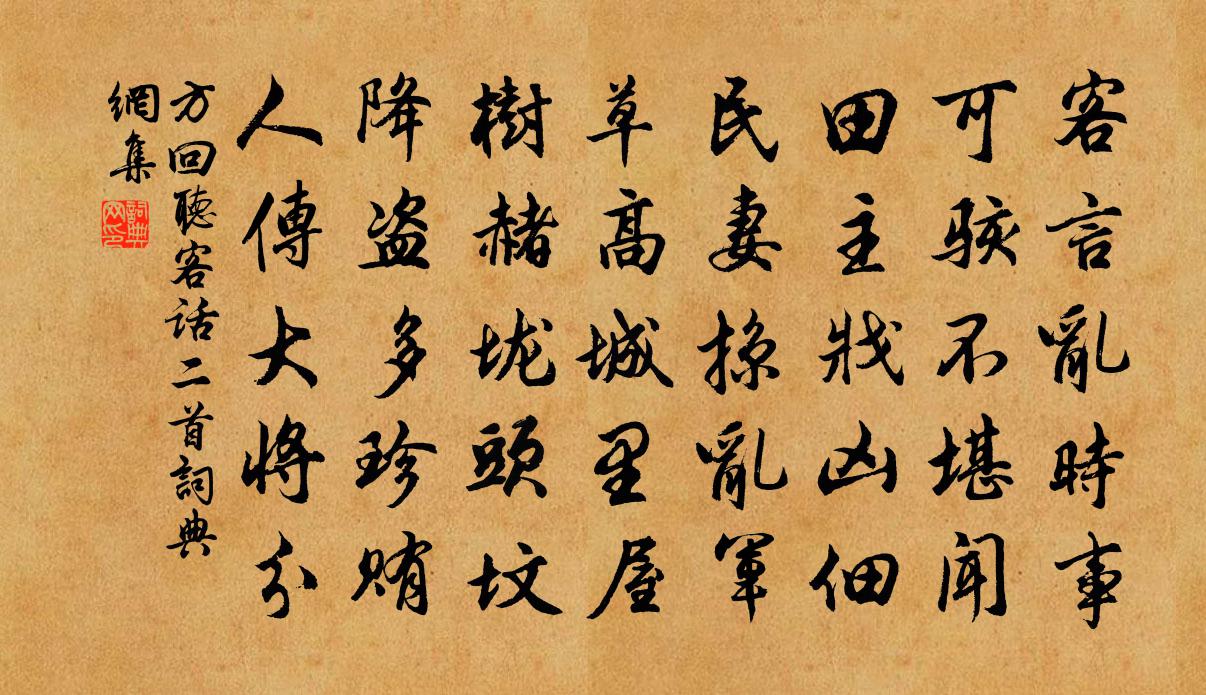 客言亂時事
可駭不堪聞
田主戕凶佃
民妻掠亂軍
草高城里屋
樹赭垅頭墳
降盗多珍賄
人傳大將分
方回聽客话二首詞典
網集
詞典
网印